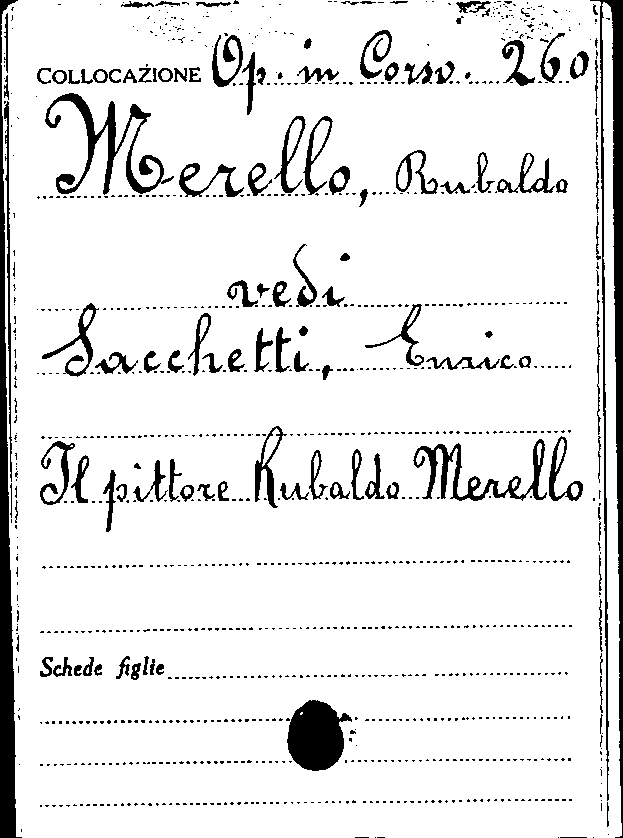 COLLOCAZIONE Op. in Corso. 260
Merello, Rubaldo
vedi
Sacchetti, Enrico
Il pittore Rubaldo Merello
Schede figlie